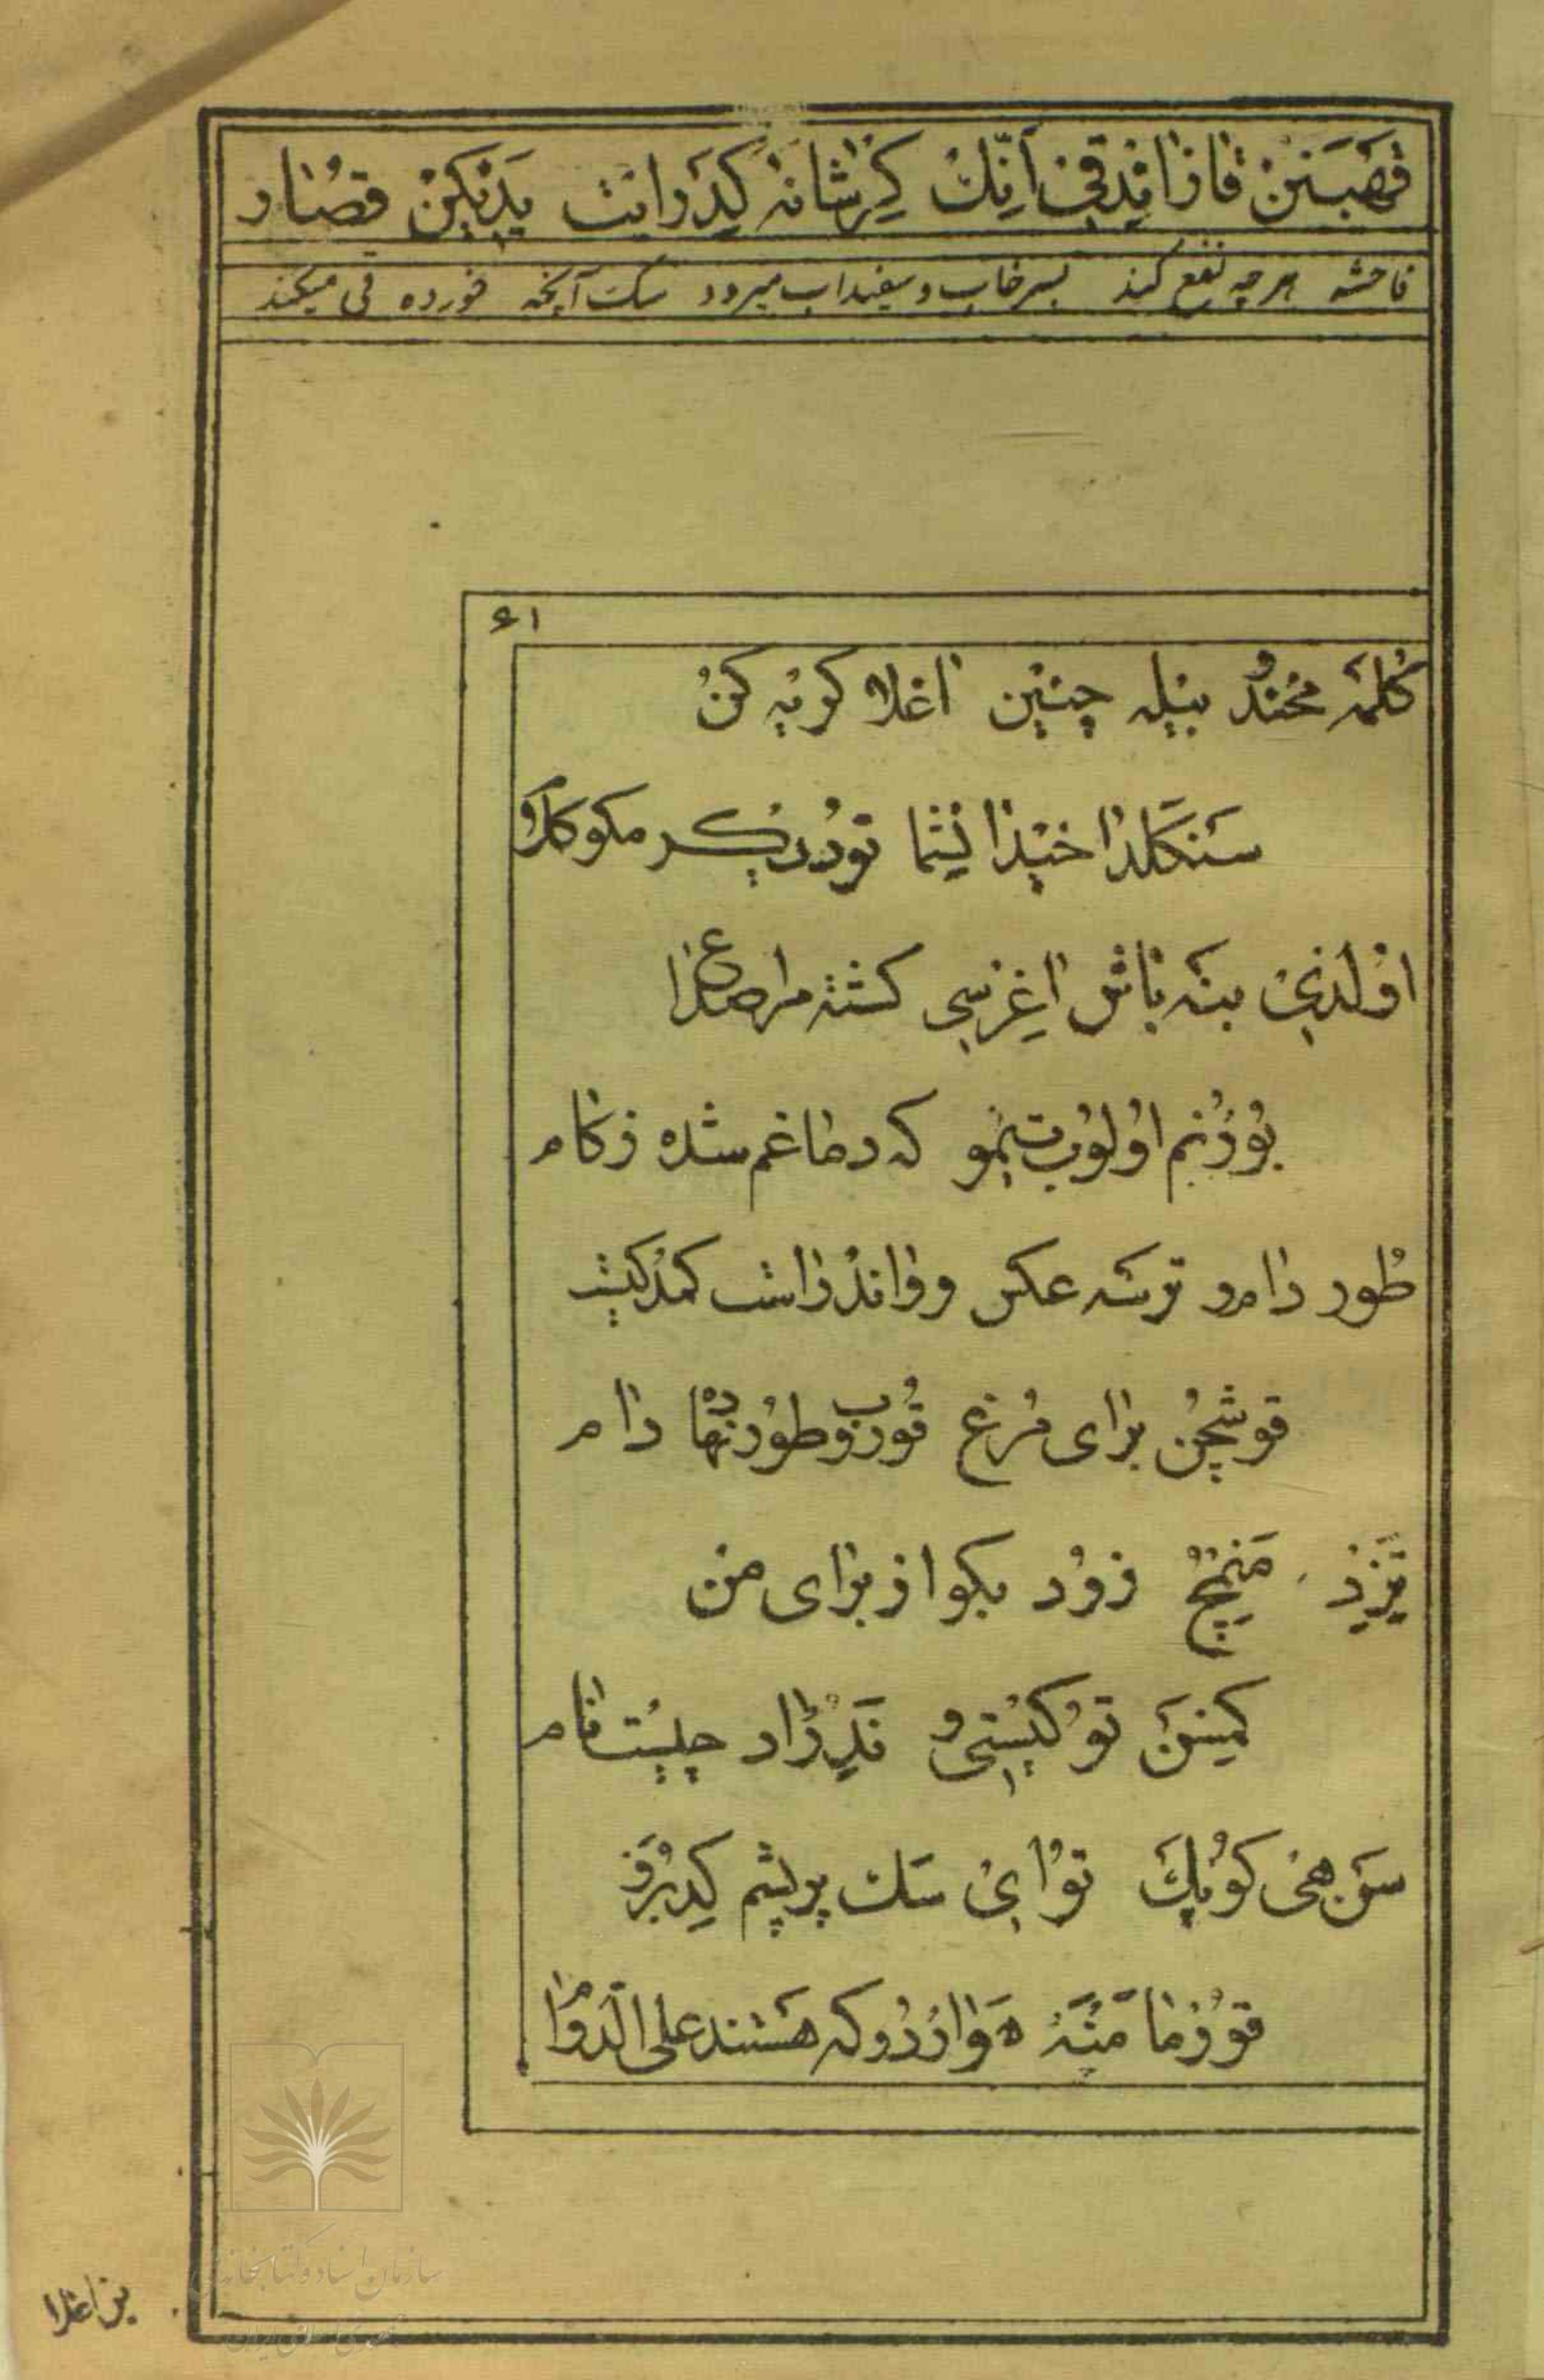 قَحبَنِنْ قازاندقی اَنِّلنْ کِرشانَه کیدَر ایت یَدیکِنْ قصار
فاحشه هر چه نفع کند بسرخاب و سفیداب میرود سک آنچه خورده قی میکند
۶۱
کُلمَه مخند بیله چنین اغلا کریه کن
سنکلدا خیدا نیتما تودریکر مکو کلام
اولدی بنه باش اغرسی کشته مرا صداع
بورنم اولوب تیمو که دماغم شده زکام
طور دامرو ترسه عکس و واندر اشت کمدکیت
قوشچن برای مرغ قوروب و طور نهاده دام
تیزید منیمچ زود بکو از برای من
کیمسن تو کیستی و ندر آد چیست نام
سن هی کوپک تو ای سک پریشم کدبرز
قورما منه هوار دو که هستند علی الدوام
بزاغدا